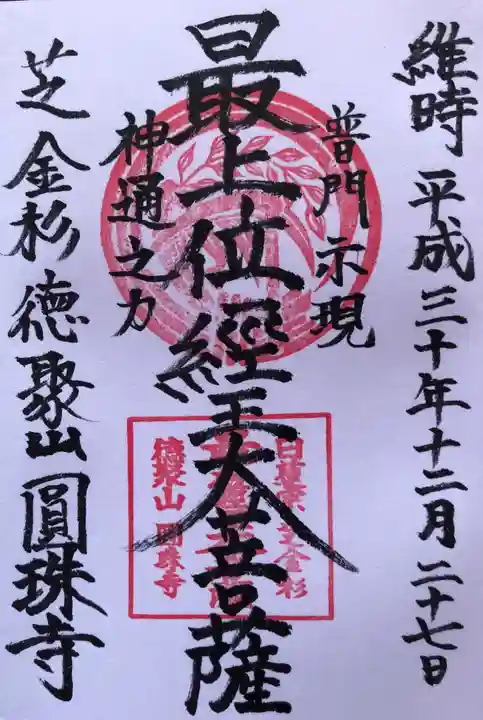 維時 平成三十年十二月二十七日
普門示現
最上位經王大菩薩
神通之力
芝金杉德聚山圓珠寺
日蓮宗 芝金杉
德聚山 圓珠寺